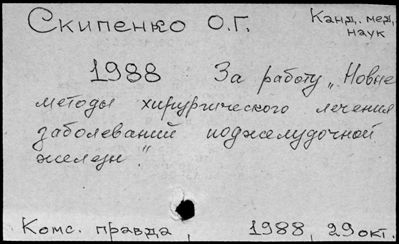 Скипенко О.Г.
Канд. мед.
наук
1988 За работу „Новые
методы хирургического лечения
заболеваний поджелудочной
желези".
Комс. правда, 1988, 29 окт.